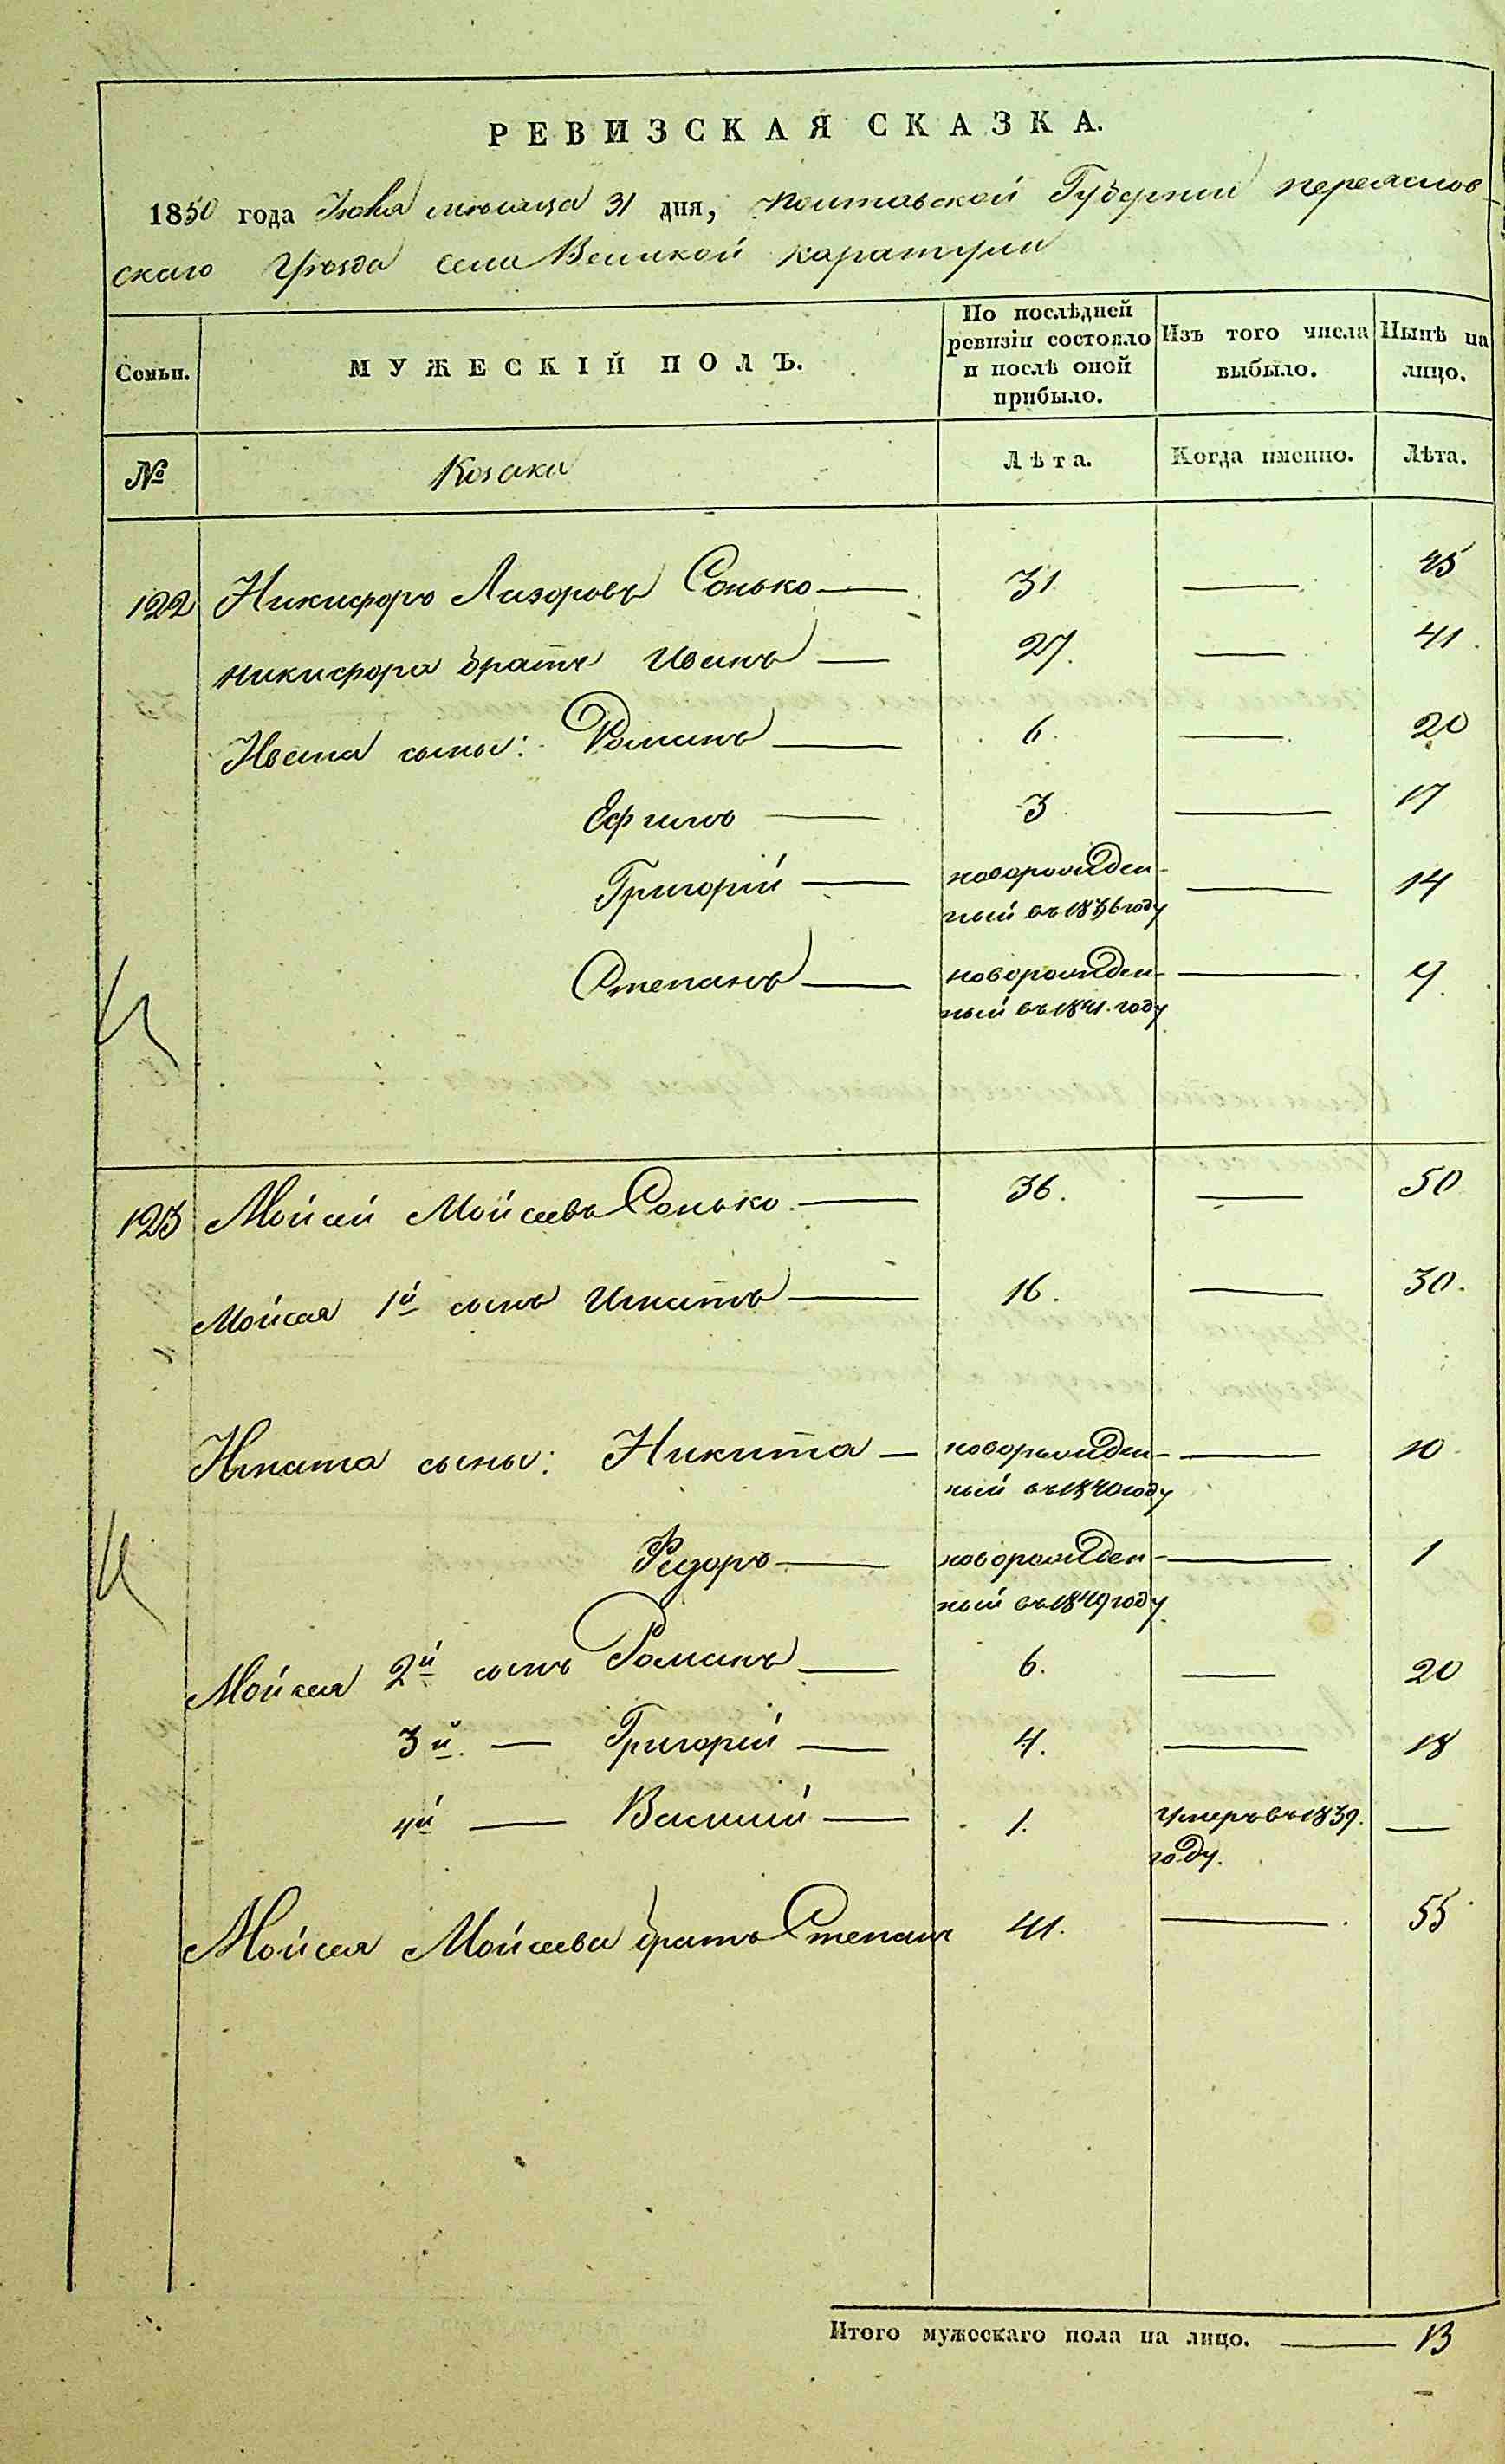 РЕВИЗСКАЯ СКАЗКА.
1850 года Июля мѣсяца 31 дня, Полтавской Губерніи Переяслов-
скаго Уѣзда села Великой Каратули
Семьи.
МУЖЕСКІЙ ПОЛЪ.
По послѣдней
ревизіи состояло
и послѣ оной
прибыло.
Изъ того числа
выбыло.
Нынѣ на
лицо.
№
Козаки
Лѣта.
Когда именно.
Лѣта.
122 Никифоръ Лазоровъ Сонько — 31 — 45
Никифора братъ Иванъ — 27. — 41.
Ивана сыны: Романъ — 6. — 20
Ефимъ — 3. — 17
Григорій — новорожден- — 14
ный въ 1836 году
Степанъ — новорожден- — 9.
ный въ 1841. году
123 Мойсей Мойсеевъ Сонько. — 36. — 50
Мойсея 1й сынъ Игнатъ — 16. — 30.
Игната сыны: Никита — новорожден- — 10
ный въ 1840 году
Федоръ — новорожден- — 1
ный въ 1849 году
Мойсея 2й сынъ Романъ — 6. — 20
3й. — Григорій — 4. — 18
4й — Василій — 1. умеръ въ 1839. —
году.
Мойсея Мойсеева братъ Степанъ 41. — 55
Итого мужескаго пола на лицо. — 13